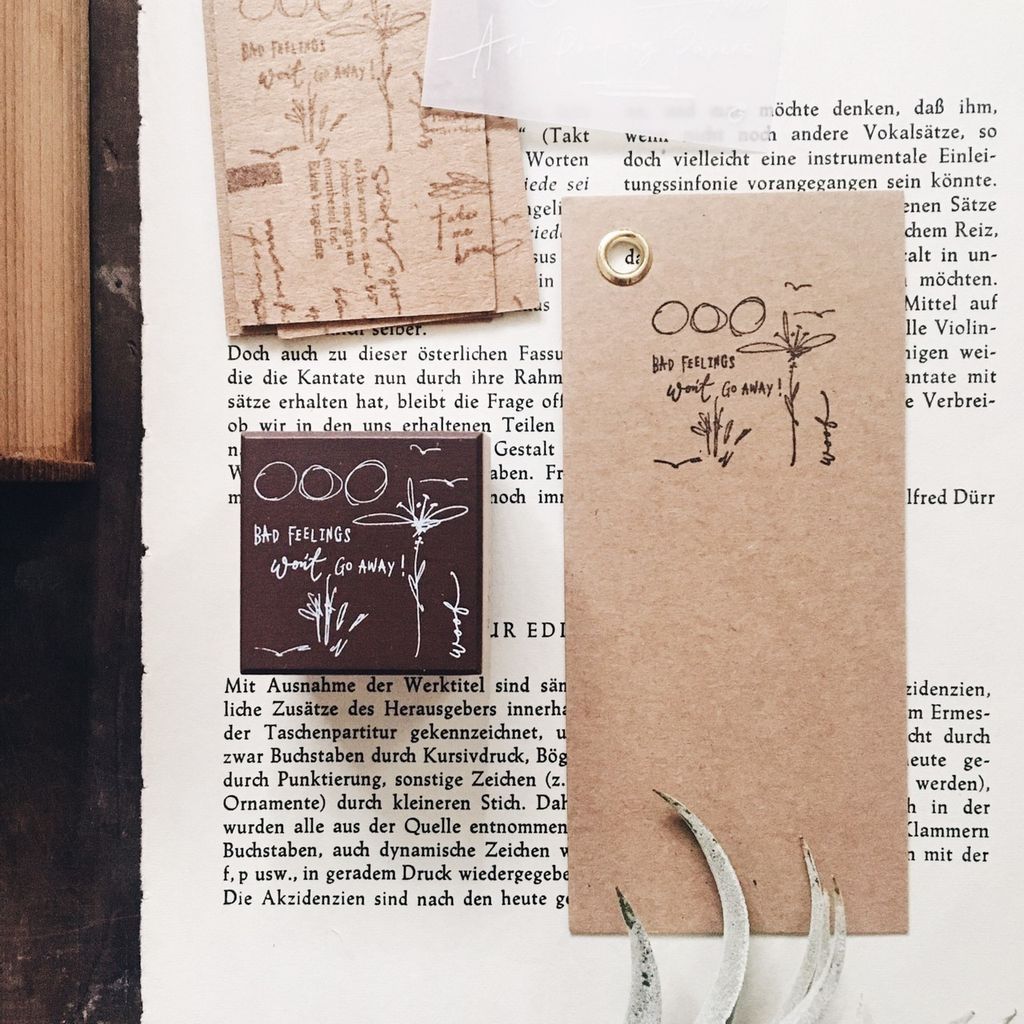 BAD FEELINGS
won't GO AWAY!
Art Printing
möchte denken, daß ihm,
" (Takt
wenn nicht noch andere Vokalsätze, so
Worten
doch vielleicht eine instrumentale Einlei-
iede sei
tungssinfonie vorangegangen sein könnte.
enen Sätze
chem Reiz,
da
calt in un-
möchten.
Mittel auf
lle Violin-
nigen wei-
antate mit
e Verbrei-
lfred Dürr
selber.
Doch auch zu dieser österlichen Fassu
die die Kantate nun durch ihre Rahm
sätze erhalten hat, bleibt die Frage off
ob wir in den uns erhaltenen Teilen
Gestalt
aben. Fr
noch imm
BAD FEELINGS
won't GO AWAY!
bloom
BAD FEELINGS
won't GO AWAY!
bloom
UR EDI
Mit Ausnahme der Werktitel sind säm
liche Zusätze des Herausgebers innerha
der Taschenpartitur gekennzeichnet, u
zwar Buchstaben durch Kursivdruck, Bög
durch Punktierung, sonstige Zeichen (z.
Ornamente) durch kleineren Stich. Dah
wurden alle aus der Quelle entnommen
Buchstaben, auch dynamische Zeichen w
f, p usw., in geradem Druck wiedergegebe
Die Akzidenzien sind nach den heute ge
zidenzien,
m Ermes-
cht durch
heute ge-
werden),
h in der
Klammern
n mit der